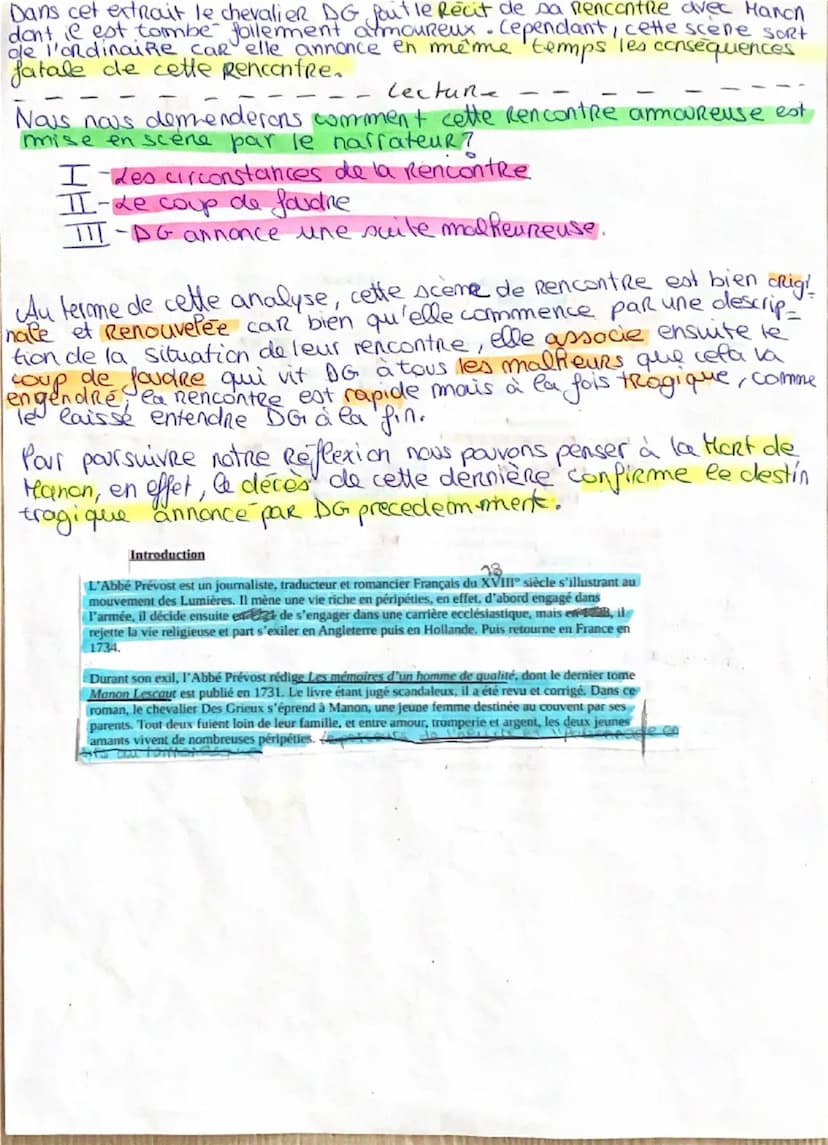 Dans cet extrait le chevalier DG fait le Récit de sa Rencontre avec Manon
dont il est tombé follement amoureux. Cependant, cette scène sort
de l'ordinaire car elle annonce en même temps les conséquences
fatale de cette Rencontre.
Lecture
Nous nous demenderons comment cette Rencontre amoureuse est
mise en scène par le narrateur?
I - Les circonstances de la Rencontre
II - Le coup de foudre
III - DG annonce une suite malheureuse.
Au terme de cette analyse, cette scène de Rencontre est bien origi-
nale et Renouvelée car bien qu'elle commence par une descrip=
tion de la situation de leur rencontre, elle associe ensuite le
coup de foudre qui vit DG à tous les malheurs que cela va
engendré, la rencontre est rapide mais à la fois tragique, comme
le laisse entendre DG à la fin.
Pour poursuivre notre Réflexion nous pouvons penser à la Mort de
Manon, en effet, le décès de cette dernière confirme le destin
tragique annoncé par DG precedemment.
Introduction
18
L'Abbé Prévost est un journaliste, traducteur et romancier Français du XVIII° siècle s'illustrant au
mouvement des Lumières. Il mène une vie riche en péripéties, en effet, d'abord engagé dans
l'armée, il décide ensuite de s'engager dans une carrière ecclésiastique, mais , il
rejette la vie religieuse et part s'exiler en Angleterre puis en Hollande. Puis retourne en France en
1734.
Durant son exil, l'Abbé Prévost rédige Les mémoires d'un homme de qualité, dont le dernier tome
Manon Lescaut est publié en 1731. Le livre étant jugé scandaleux, il a été revu et corrigé. Dans ce
roman, le chevalier Des Grieux s'éprend à Manon, une jeune femme destinée au couvent par ses
parents. Tout deux fuient loin de leur famille, et entre amour, tromperie et argent, les deux jeunes
amants vivent de nombreuses péripéties.